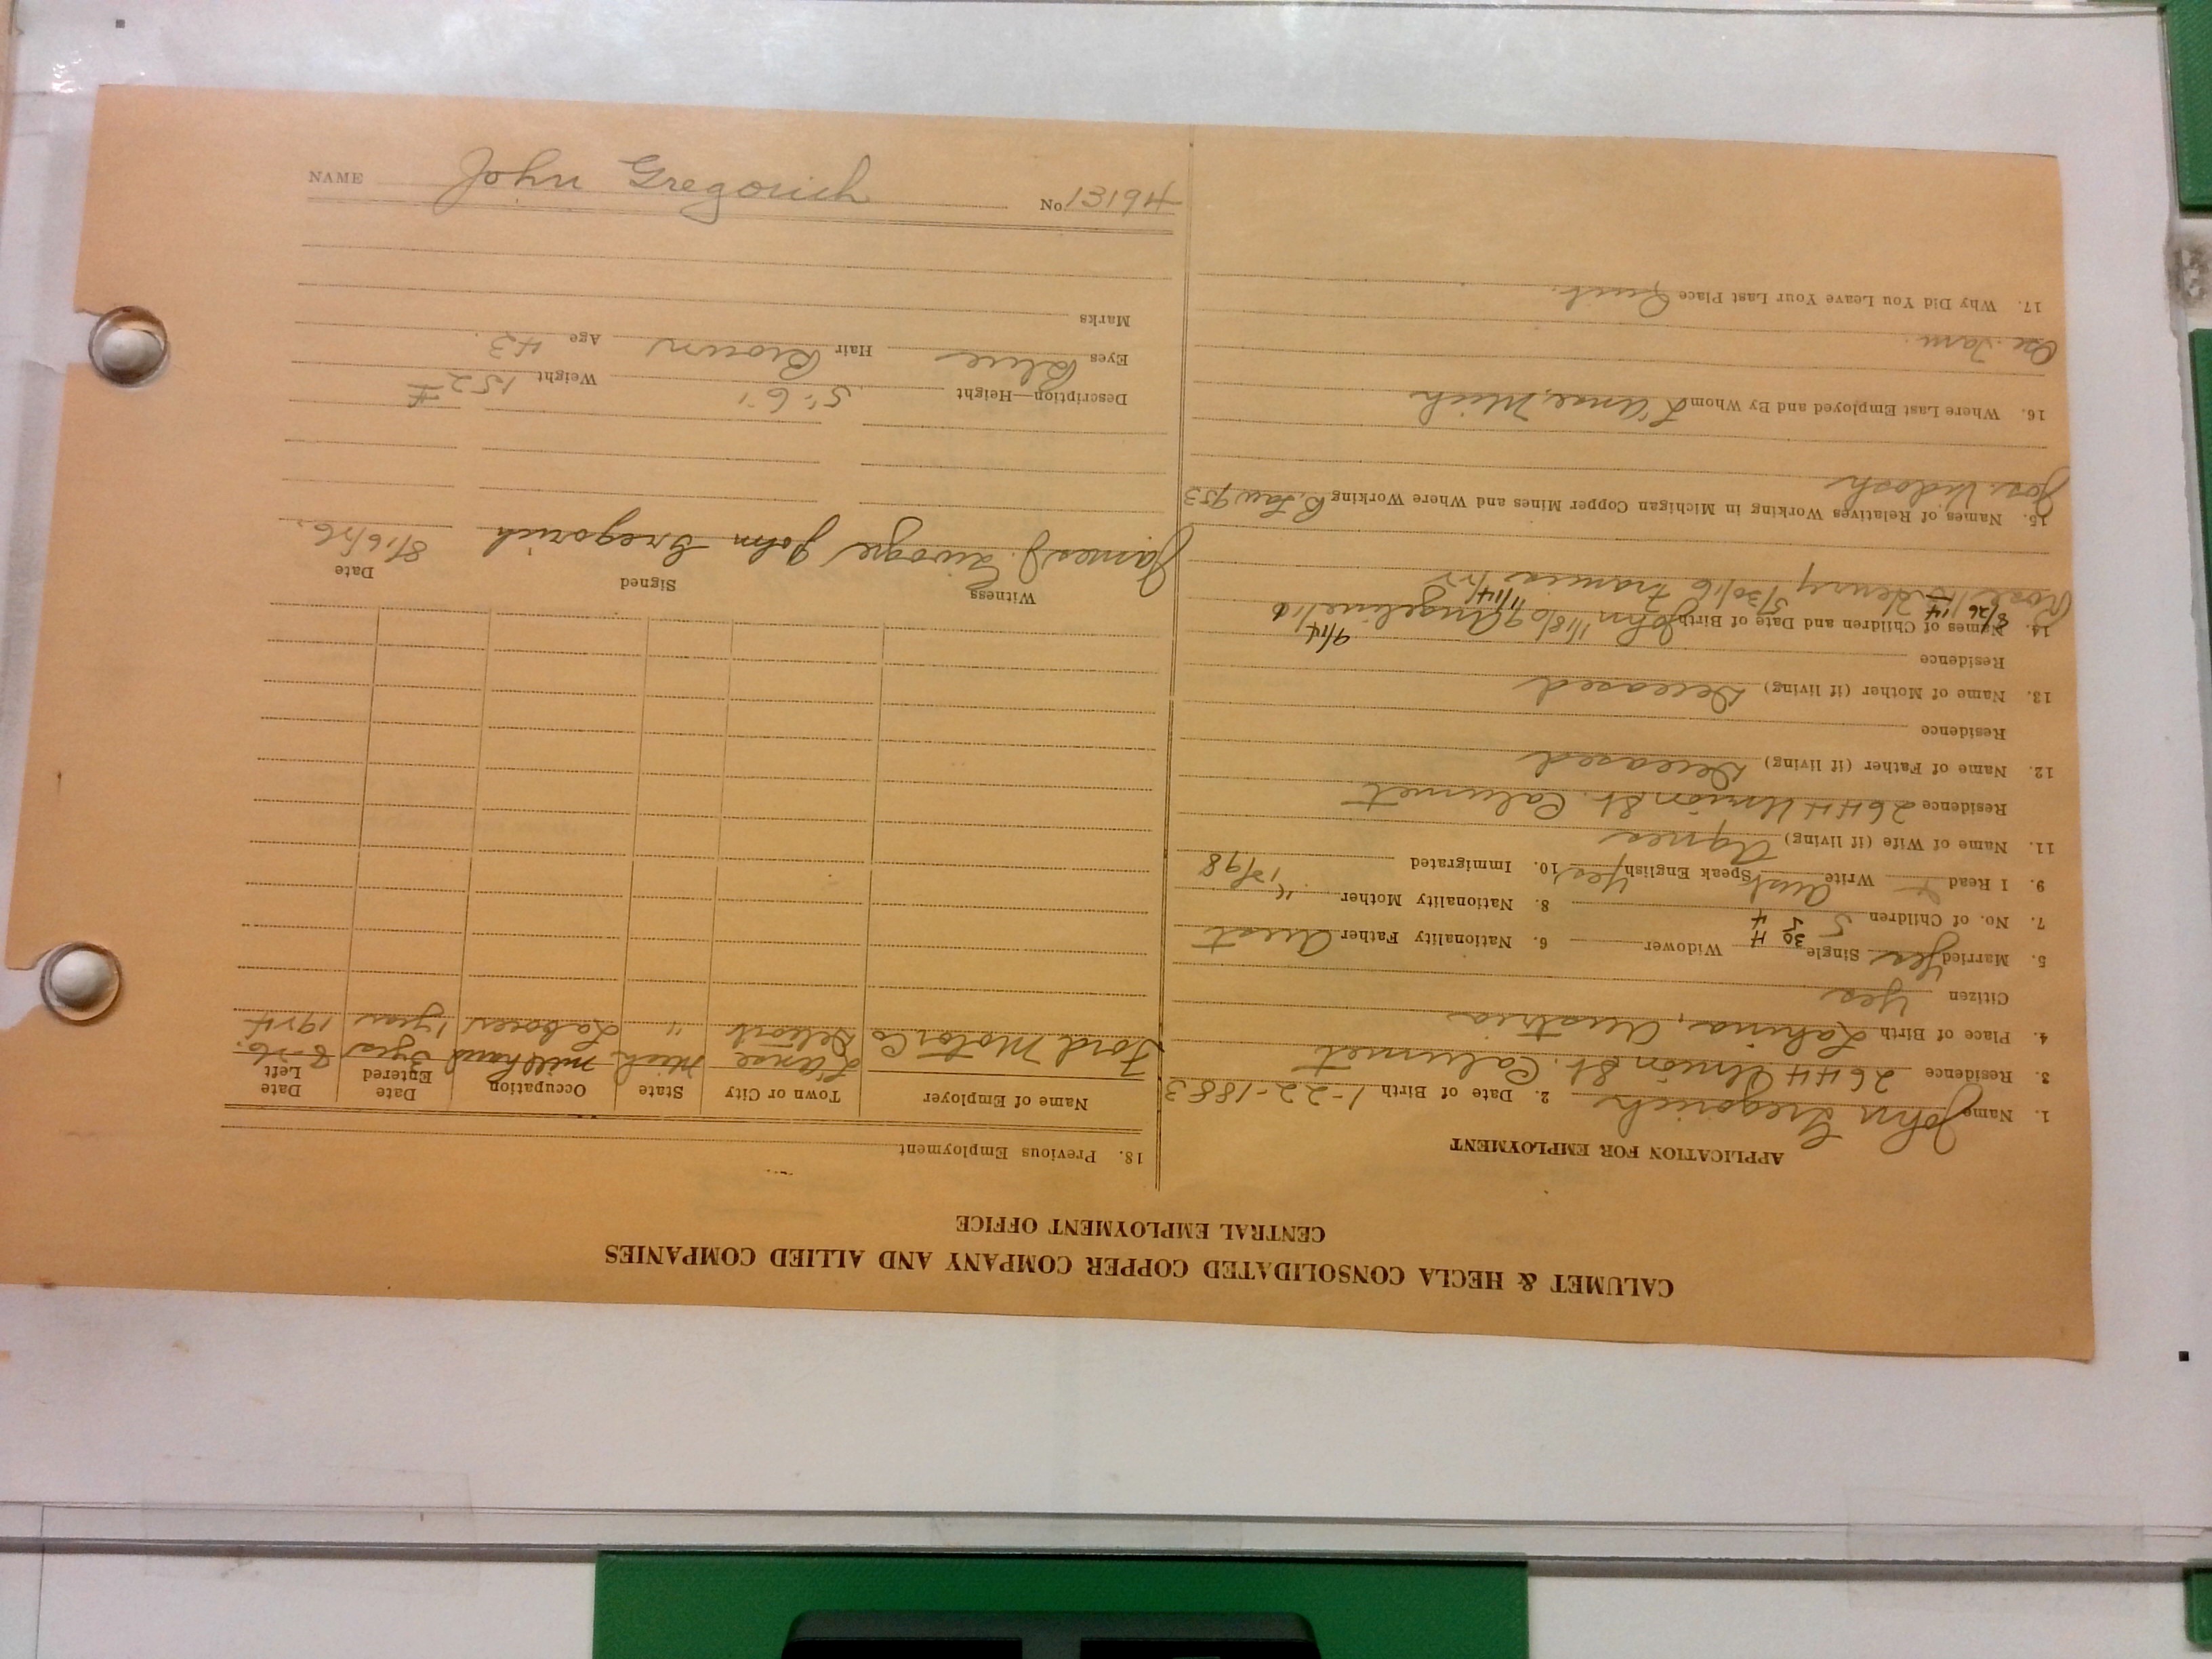 CALUMET & HECLA CONSOLIDATED COPPER COMPANY AND ALLIED COMPANIES
CENTRAL EMPLOYMENT OFFICE
APPLICATION FOR EMPLOYMENT
1. Name John Gregorich 2. Date of Birth 1-22-1883
3. Residence 2644 Union St. Calumet
4. Place of Birth Austria
Citizen Yes
5. Married Yes Single Widower 6. Nationality Father Aust
7. No. of Children 5 8. Nationality Mother "
9. I Read Write Aust Speak English Yes 10. Immigrated 12/98
11. Name of Wife (if living) Agnes
Residence 2644 Union St. Calumet
12. Name of Father (if living) Deceased
Residence
13. Name of Mother (if living) Deceased
Residence
14. Names of Children and Date of Birth John 11/18/09 Angeline
Rose Henry 5/30/16 Francis
15. Names of Relatives Working in Michigan Copper Mines and Where Working B. Law 953
Jos.
16. Where Last Employed and By Whom L'Anse, Mich
17. Why Did You Leave Your Last Place Quit.
18. Previous Employment
Name of Employer Town or City State Occupation Date Entered Date Left
Ford Motor Co L'Anse Mich mill hand 3 yrs 8-26.
Detroit " Laborer 1 year 1924
Witness Signed Date
James J. John Gregorich 8/16/26.
Description—Height 5'.6" Weight 152#
Eyes Blue Hair Brown Age 43.
Marks
NAME John Gregorich No 13194